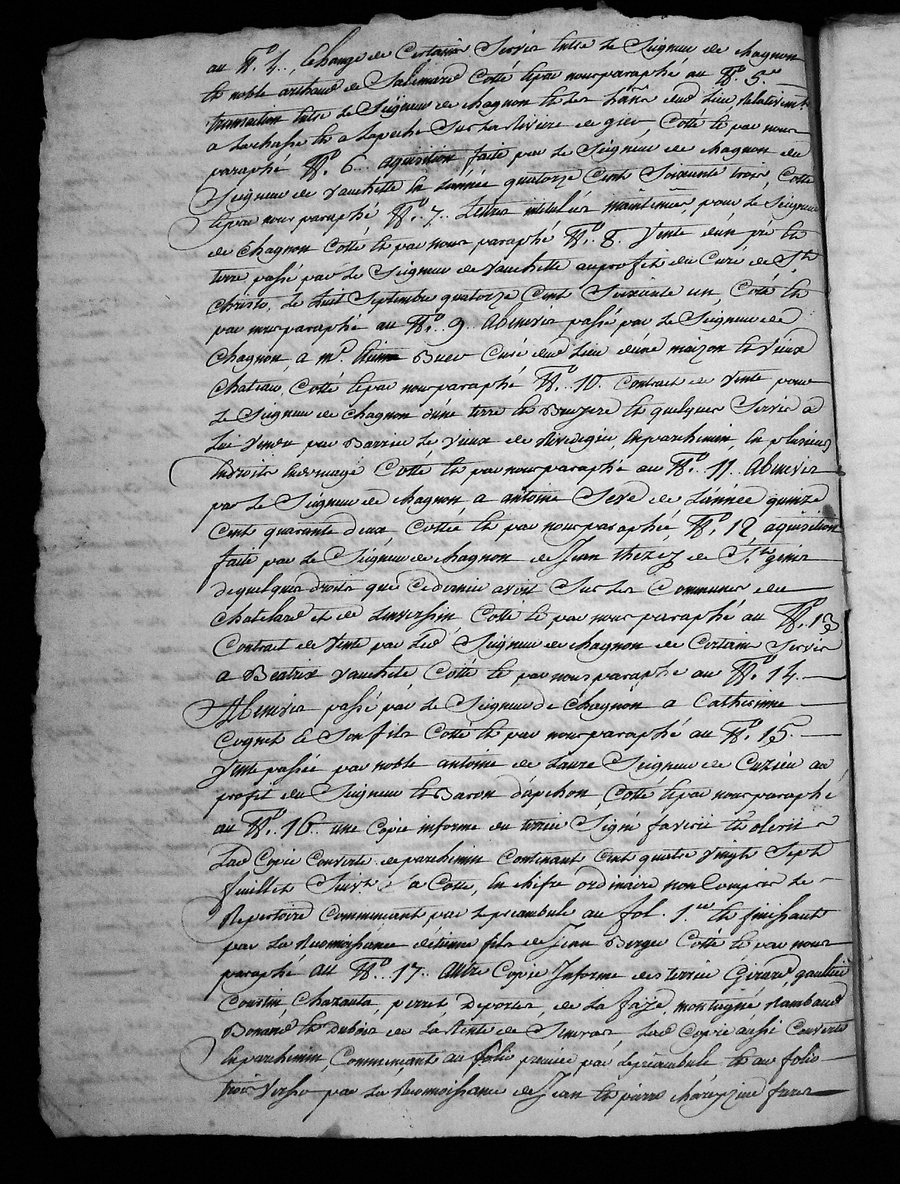 au N.o 4., Echange de Certains Servis Entre le Seigneur de chagnon
Et noble arthaud de Salemard Cotté Et par nous paraphé au N.o 5.e
transaction Entre le Seigneur de chagnon Et Les hans dud. Lieu Relativemt
a La chasse Et a La peche Sur La Riviere de gier, Coté Et par nous
paraphé N.o 6. aquisition faite par Le Seigneur de chagnon du
Seigneur de vauchette En L'année quatorze Cent Soixante trois, Cotté
Et par nous paraphé N.o 7. Lettres maintenue pour Le Seigneur
de chagnon Cotté Et par nous paraphé N.o 8. Vente d'un pré Et
terre passé par Le Seigneur de vauchette au profit du Curé de St.
Christo, Le huit Septembre quatorze Cent Soixante un, Coté Et
par nous paraphé au N.o 9. Abenevis passé par Le Seigneur de
Chagnon a mr. Buer Curé dud. Lieu d'une maizon Et vieux
Chateau, Cotté Et par nous paraphé N.o 10. Contract de Vente pour
Le Seigneur de chagnon d'une terre Et Bruyere Et quelques Servis a
Lui Vendu par Barrieu Le Vieux de En parchemin En plusieurs
Endroits Endomagé Cotté Et par nous paraphé au N.o 11. Abenevis
par Le Seigneur de chagnon a antoine Seve de L'année quinze
Cent quarante deux, Cottée Et par nous paraphé, N.o 12, aquisition
faite par Le Seigneur de chagnon de Jean thezez de St. genis
de quelques droits que Ce dernier avoit Sur Les Communes de
Chatelard et de Linversin Cotté Et par nous paraphé au N.o 13
Contract de Vente par Led. Seigneur de chagnon de Certain Servis
a Beatrix vauchette Cotté Et par nous paraphé au N.o 14.
Abenevis passé par Le Seigneur de Chagnon a Catherinne
Cognet Et Son fils Cotté Et par nous paraphé au N.o 15.
Vente passée par noble antoine de Laure Seigneur de Cuzieu au
profit du Seigneur Le Baron d'apchon, Cotté Et par nous paraphé
au N.o 16. une Copie informe du terrier Signé faverii Et olerii
Lad. Copie Couverte de parchemin Contenant Cent quatre vingts Sept
feuillets Suivt. Sa Cotte, En chifre ordinaire non Compris Le
Repertoire Commencant par Le preambule au fol. 1.er Et finissant
par La Reconnoissance d'étienne fils de Jean Berger Cotté Et par nous
paraphé au N.o 17. Autre Copie Informe des terriers Girard, gaultier
Cousin Charauta, perret Deportes, de La faye, montagné Rambaud
Bonand Et Dubois de La Rente de Senevas Lad. Copie aussi Couverte
En parchemin, Commencant au folio premier par Le preambule Et au folio
trois Verso par La Reconnoissance de Jean Et pierre freres